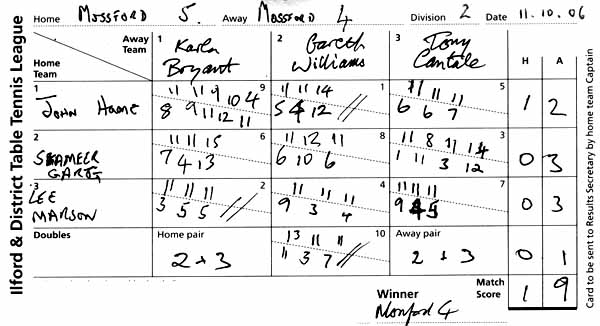 Ilford & District Table Tennis League
Home Mossford 5. Away Mossford 4 Division 2 Date 11.10.06
Away Team
Home Team
1 Karla Bryant
2 Gareth Williams
3 Tony Cantale
H A
1 John Hame
11 11 9 10 4 9
8 9 11 12 11
11 11 14 1
5 4 12 //
11 11 11 5
6 6 7
1 2
2 Sameer Garg
11 11 15 6
7 4 13
11 12 11 8
6 10 6
11 8 11 14 3
1 11 3 12
0 3
3 Lee Marson
11 11 11 2
3 5 5 //
11 11 11 4
9 3 4
11 11 11 7
9 5
0 3
Doubles
Home pair
2 + 3
13 11 11 10
11 3 7 //
Away pair
2 + 3
0 1
Winner Match Score 1 9
Mossford 4
Card to be sent to Results Secretary by home team Captain